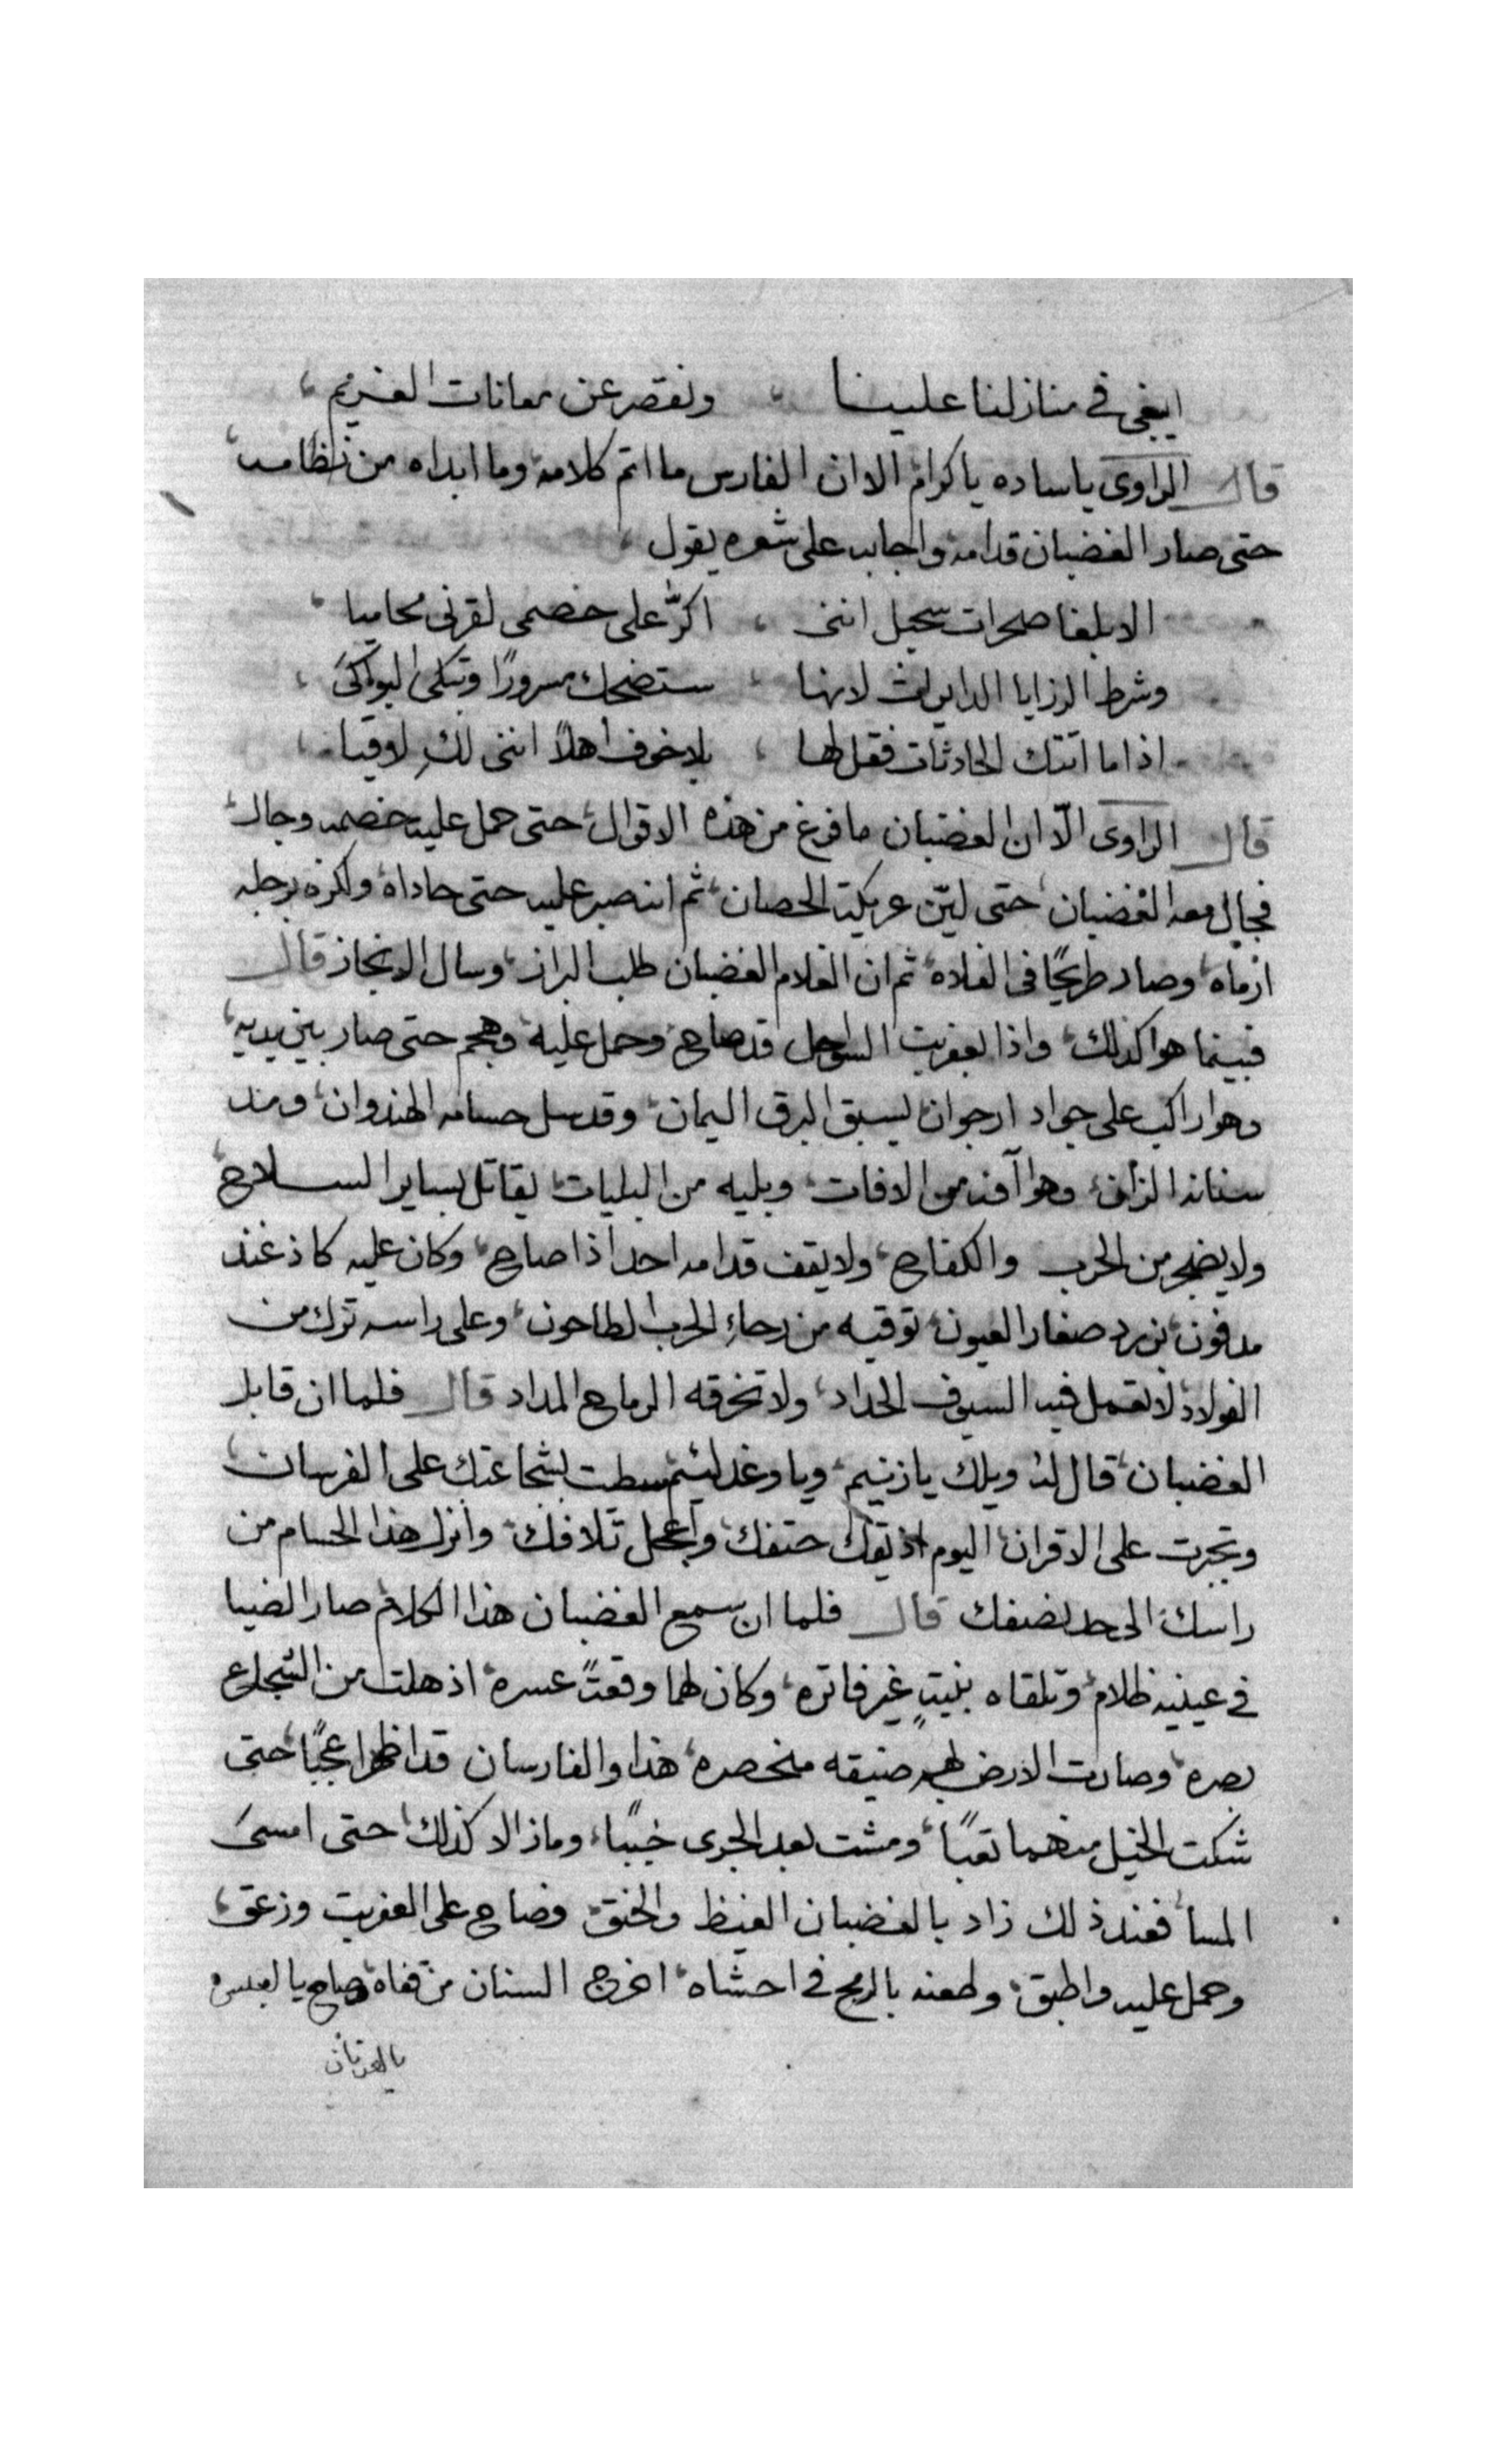 ايبغى في منازلنا علينا ونقصر عن معانات الغريم
قال الراوى ياساده ياكرام الا ان الفارس ما اتم كلامه وما ابداه من نظامه
حتى صار الغضبان قدامه واجابه على شعره يقول
الا بلغا صلحرات سحيل اننى اكرّ على خصمى لقرنى محاميا
وشرط الرزايا الدايرات لانها ستضحك سرورًا وتبكى البواكى
اذا ما اتتك الحادثات فقل لها بلا خوف اهلًا اننى لكِ لاوقيا
قال الراوى الّا ان الغضبان ما فرغ من هذه الاقوال حتى حمل عليه خصمه وجال
فجال معه الغضبان حتى ليّن عريكة الحصان ثم انتصب عليه حتى حاداه ولكزه برجله
ارماه وصار طريحًا فى الفلاه ثم ان الغلام الغضبان طلب البراز وسال الانجاز قال
فبينما هوا كذلك واذا بعفريت السواحل قد صاح وحمل عليه وهجم حتى صار بين يديه
وهوا راكب على جواد ارجوان يسبق البرق اليمان وقد سل حسامه الهندوان ومد
سنانه الزان وهوا آفه من الافات وبليه من البليات يقاتل بساير السلاح
ولا يضجر من الحرب والكفاح ولا يقف قدامه احد اذا صاح وكان عليه كاذغند
مدفون بزرد صغار العيون توقيه من رحاءِ الحرب الطاحون وعلى راسه ترك من
الفولاد لا تعمل فيه السيوف الحداد ولا تخرقه الرماح المداد قال فلما ان قابل
الغضبان قال له ويلك يازنيم ويا وغد لئيم سطت بشجاعتك على الفرسان
وتجبرت على الاقران اليوم اذيقك حتفك واعجل تلافك وانزل هذا الحسام من
راسك الى حد نصفك قال فلما ان سمع الغضبان هذا الكلام صار الضيا
في عينيه ظلام وتلقاه بنيتٍ غير فاتره وكان لهما وقعتً عسره اذهلت من الشجاع
بصره وصارت الارض لهم ضيقه منحصره هذا والفارسان قد اظهرا عجبًا حتى
شكت الخيل منهما تعبًا ومشت بعد الجرى خببًا وما زالا كذلك حتى امسى
المسا فعند ذلك زاد بالغضبان الغيظ والخنق وصاح على العفريت وزعق
وحمل عليه واطبق وطعنه بالرمح في احشاه اخرج السنان من قفاه وصاح يا لعبس
يا لعدنان